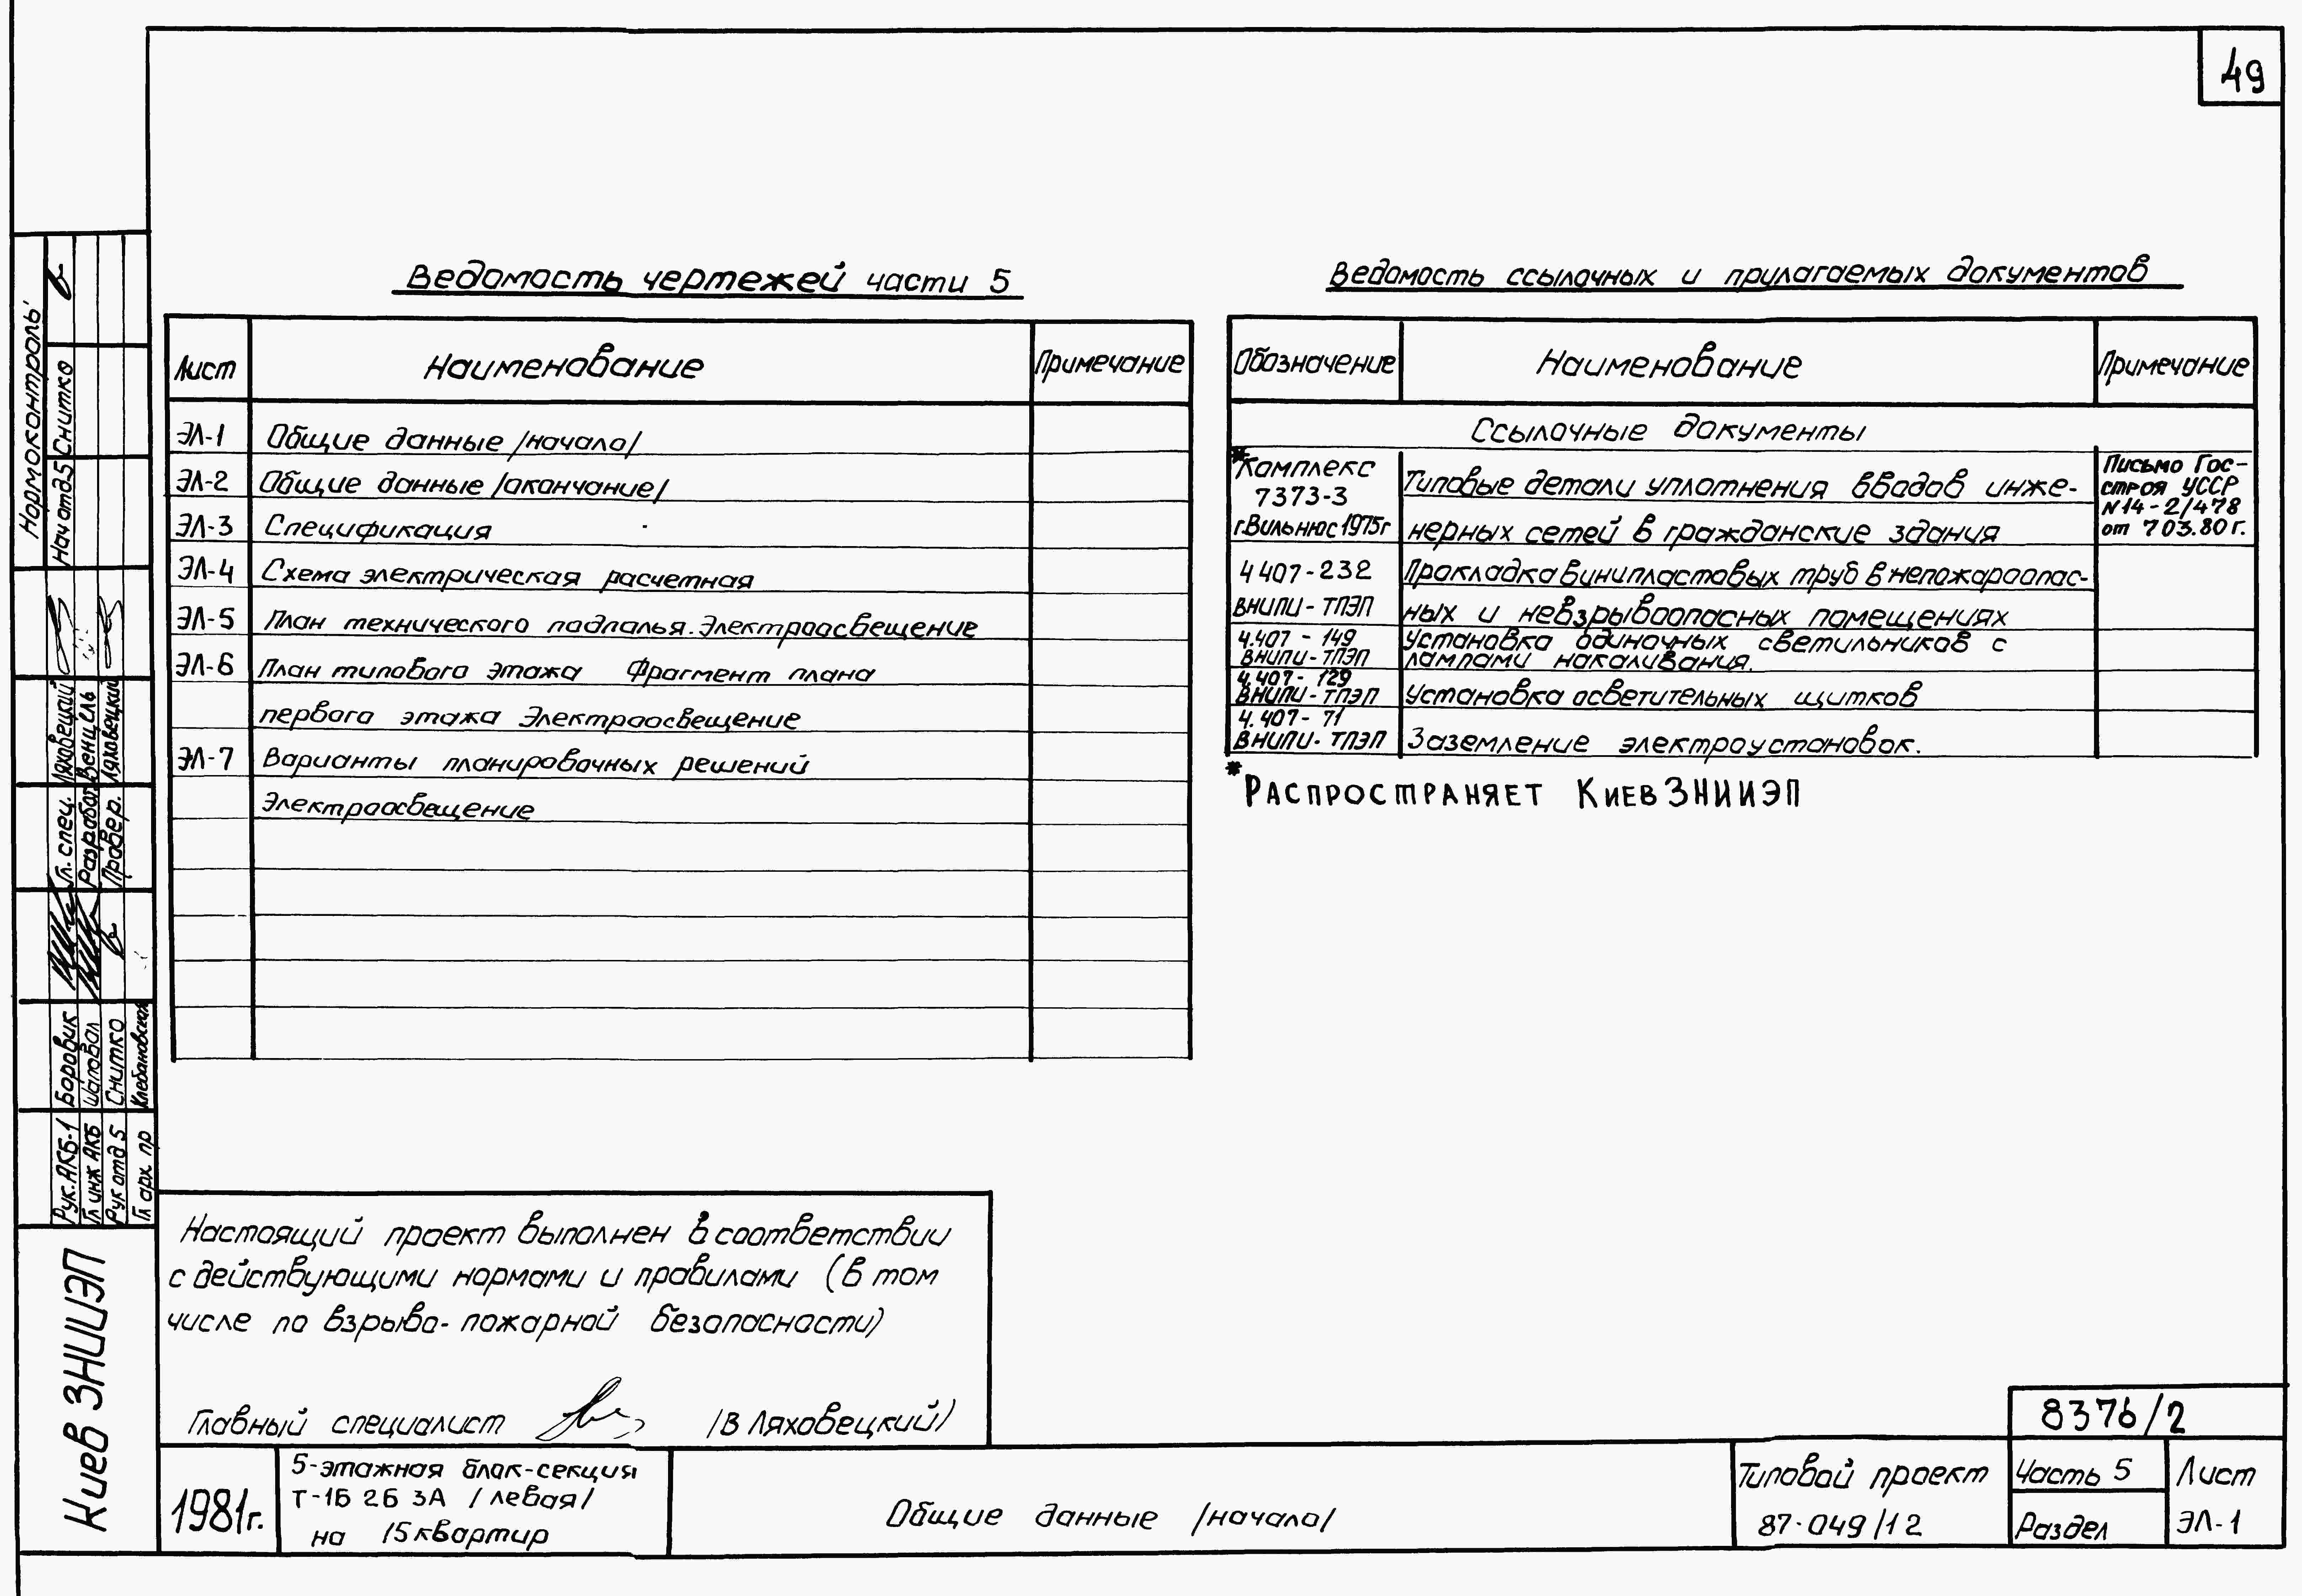 49
Ведомость чертежей части 5
Лист Наименование Примечание
ЭЛ-1 Общие данные /начало/
ЭЛ-2 Общие данные /окончание/
ЭЛ-3 Спецификация
ЭЛ-4 Схема электрическая расчетная
ЭЛ-5 План технического подполья. Электроосвещение
ЭЛ-6 План типового этажа Фрагмент плана
первого этажа Электроосвещение
ЭЛ-7 Варианты планировочных решений
Электроосвещение
Ведомость ссылочных и прулагаемых документов
Обозначение Наименование Примечание
Ссылочные документы
*Комплекс
7373-3
г.Вильнюс 1975г
Типовые детали уплотнения вводов инже-
нерных сетей в гражданские здания
Письмо Гос-
строя УССР
N14-2/478
от 703.80г.
4 407-232
ВНИПИ-ТПЭП
Прокладка винипластовых труб в непожароопас-
ных и невзрывоопасных помещениях
4.407-149
ВНИПИ-ТПЭП
Установка одиночных светильников с
лампами накаливания.
4.407-129
ВНИПИ-ТПЭП
Установка осветительных щитков
4.407-71
ВНИПИ-ТПЭП
Заземление электроустановок.
*Распространяет КиевЗНИИЭП
Нормоконтроль
Нач отд5 Снитко
Гл. спец. Ляховецкий
Разработ. Венцель
Провер. Ляховецкий
Рук. АКБ-1 Боровик
Гл инж АКБ Шаповал
Рук отд 5 Снитко
Гл арх. пр Клебановский
Киев ЗНИИЭП
Настоящий проект выполнен в соответствии
с действующими нормами и правилами (в том
числе по взрыво-пожарной безопасности)
Главный специалист /В Ляховецкий/
1981г.
5-этажная блок-секция
Т-1Б 2Б 3А /левая/
на 15 квартир
Общие данные /начало/
Типовой проект
87-049/12
8376/2
Часть 5
Раздел
Лист
ЭЛ-1